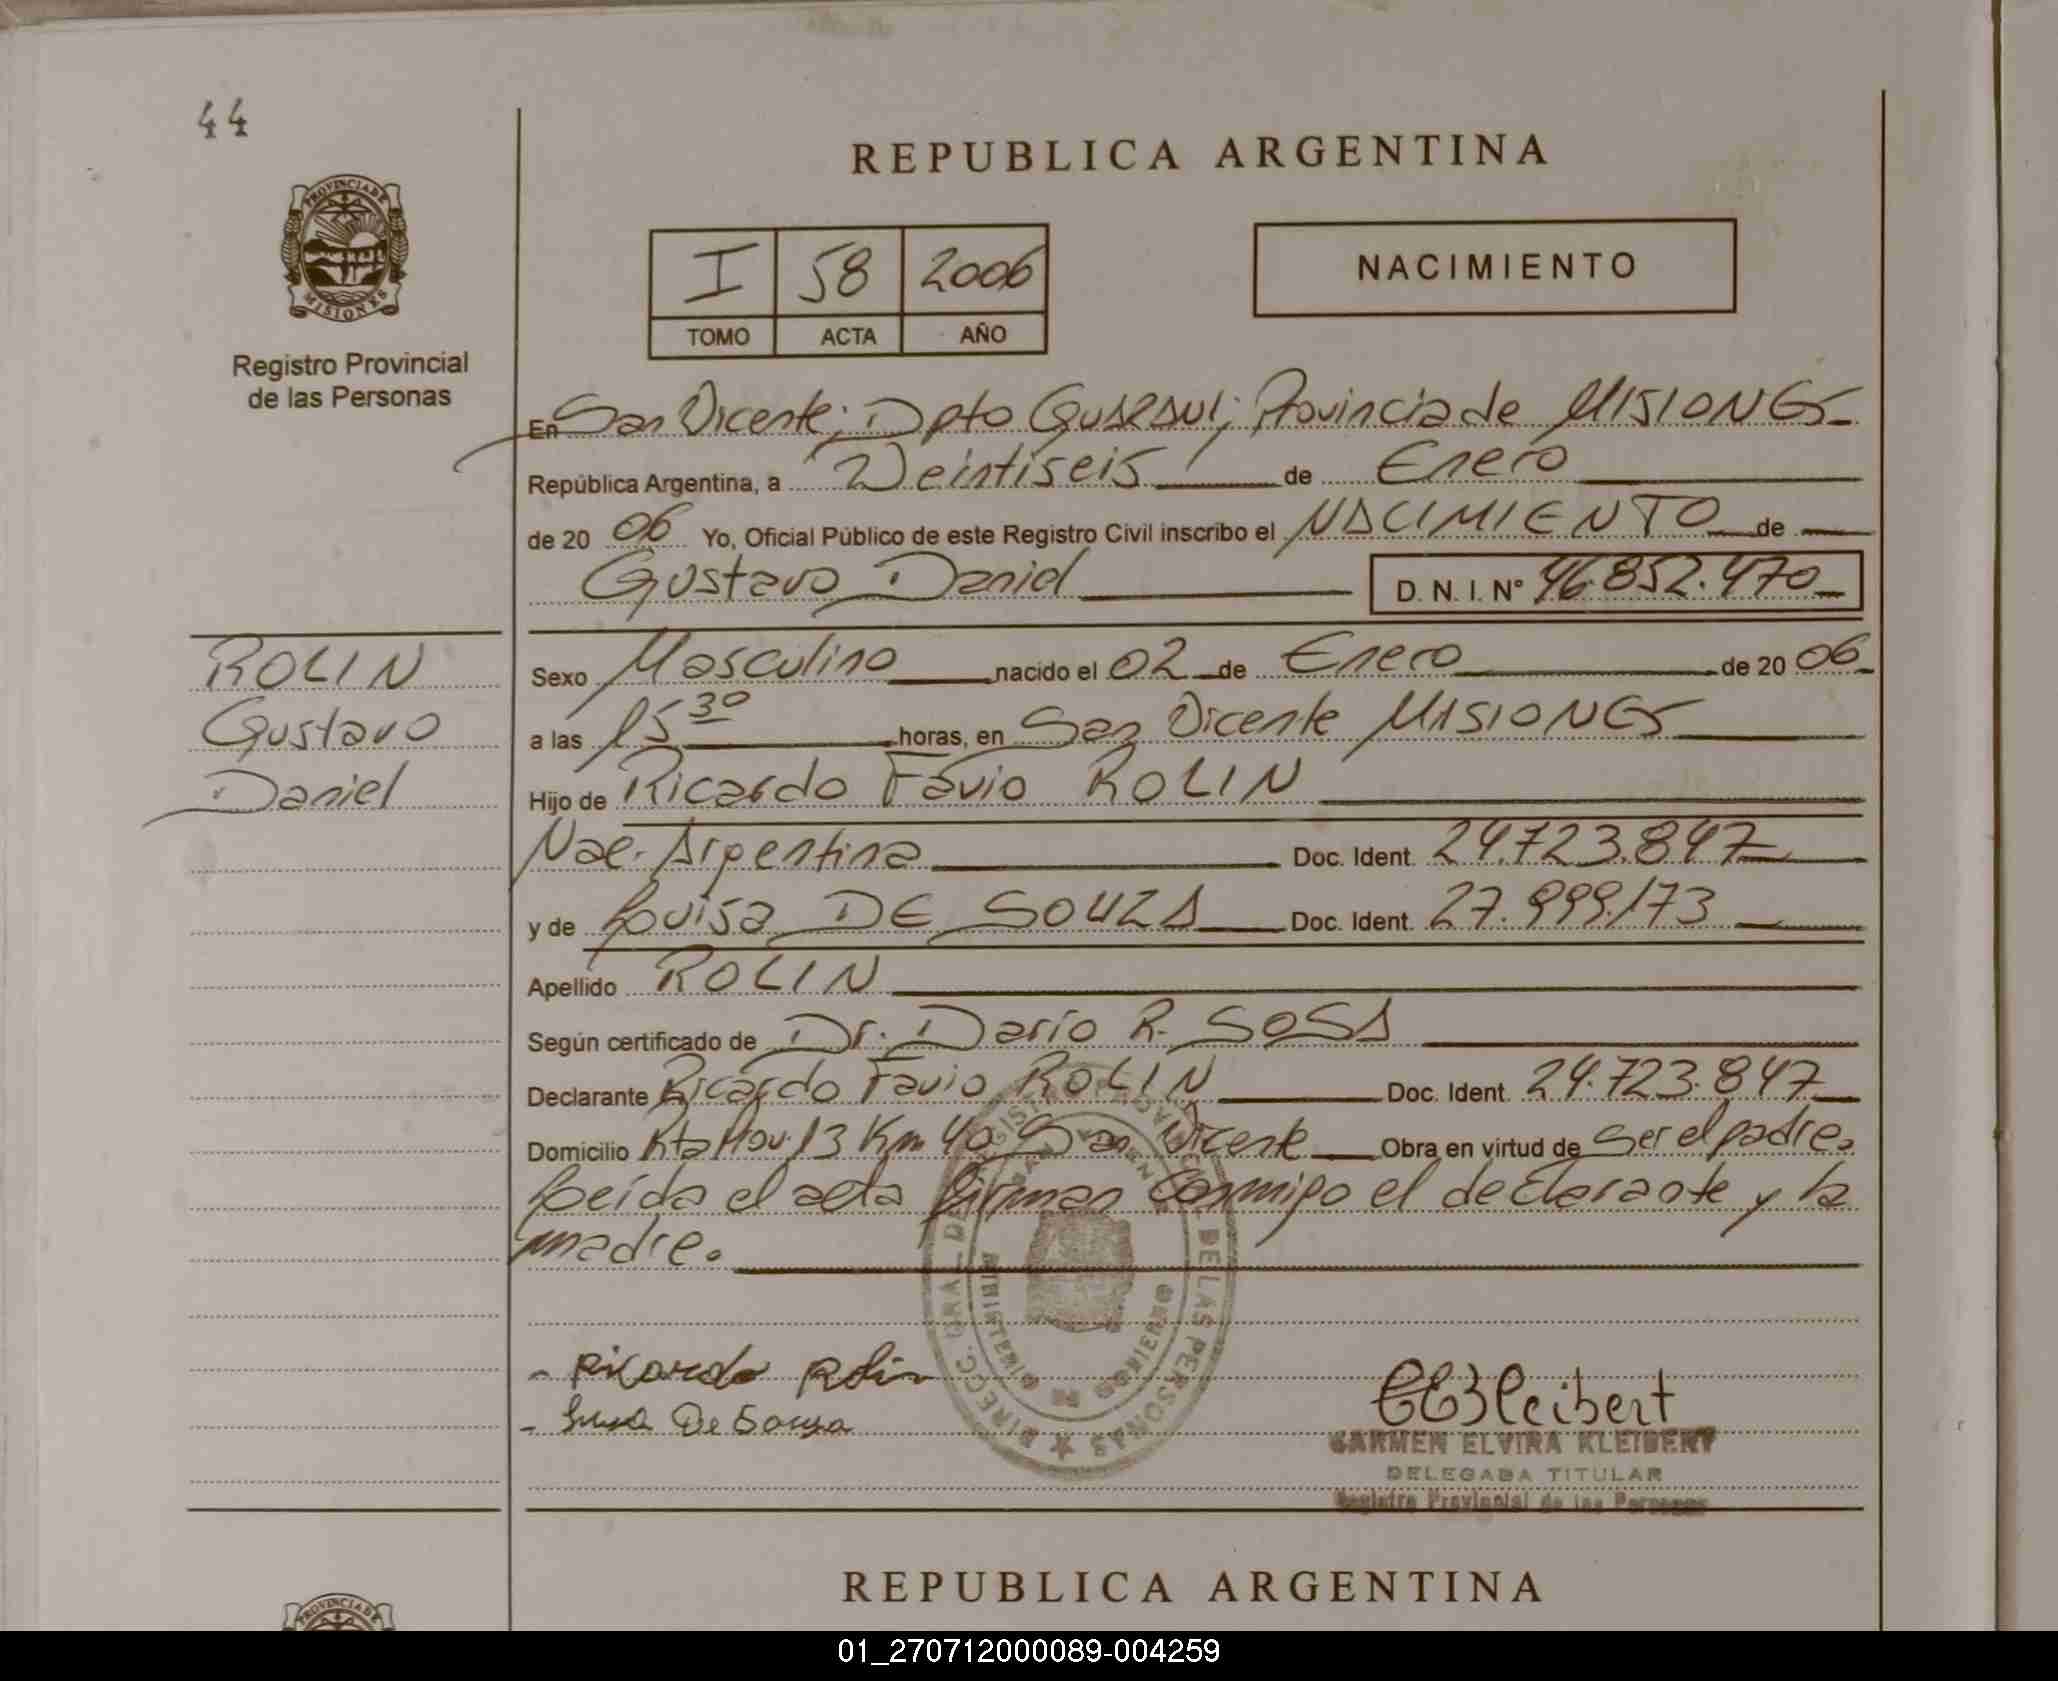 44
PROVINCIA DE
MISIONES
Registro Provincial
de las Personas
REPUBLICA ARGENTINA
I 58 2006
TOMO ACTA AÑO
NACIMIENTO
En San Vicente; Dpto Guaraní; Provincia de MISIONES
República Argentina, a Veintiseis de Enero
de 20 06 Yo, Oficial Público de este Registro Civil inscribo el NACIMIENTO de
Gustavo Daniel D.N.I. Nº 46.852.470
ROLIN
Gustavo
Daniel
Sexo Masculino nacido el 02 de Enero de 20 06
a las 15 30 horas, en San Vicente MISIONES
Hijo de Ricardo Favio ROLIN
Nac. Argentina Doc. Ident. 24.723.847
y de Louisa DE SOUZA Doc. Ident. 27.999.173
Apellido ROLIN
Según certificado de Dr. Darío R. SOSA
Declarante Ricardo Favio ROLIN Doc. Ident. 24.723.847
Domicilio Rta Nac. 13 Km 40 San Vicente Obra en virtud de Ser el padre.
Leída el acta firman conmigo el declarante y la
madre.
DIRECC. GRAL. DEL REGISTRO PROVINCIAL DE LAS PERSONAS
SAN VICENTE
MINISTERIO DE GOBIERNO
- Ricardo Rolin
- De Souza
CEKleibert
CARMEN ELVIRA KLEIBERT
DELEGADA TITULAR
Registro Provincial de las Personas
REPUBLICA ARGENTINA
PROVINCIA DE
01_270712000089-004259